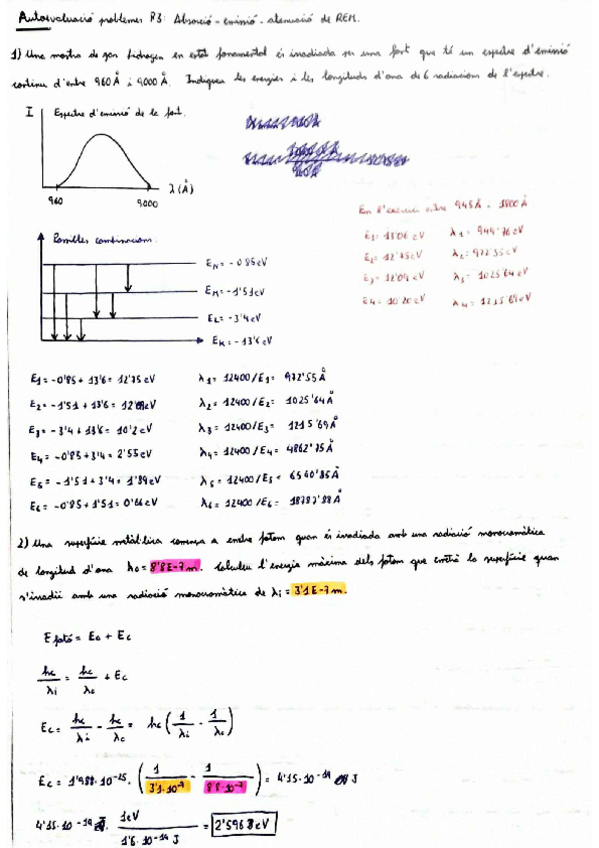 Autoavaluació problemes P3: Absorció - emissió - atenuació de REM.
1) Una mostra de gas hidrogen en estat fonamental és irradiada per una font que té un espectre d'emissió
continu d'entre 960 Å i 9000 Å. Indiqueu les energies i les longituds d'ona de 6 radiacions de l'espectre.
I
Espectre d'emissió de la font.
λ (Å)
960
9000
En l'exercici entre 945 Å - 1800 Å
E1= 13'06 eV λ1= 949'76 eV
E2= 12'75 eV λ2= 972'55 eV
E3= 12'09 eV λ3= 1025'64 eV
E4= 10'20 eV λ4= 1215'69 eV
Possibles combinacions:
EN= -0'85 eV
EM= -1'51 eV
EL= -3'4 eV
EK= -13'6 eV
E1= -0'85 + 13'6 = 12'75 eV λ1= 12400/E1= 972'55 Å
E2= -1'51 + 13'6 = 12'09 eV λ2= 12400/E2= 1025'64 Å
E3= -3'4 + 13'6 = 10'2 eV λ3= 12400/E3= 1215'69 Å
E4= -0'85 + 3'4 = 2'55 eV λ4= 12400/E4= 4862'75 Å
E5= -1'51 + 3'4 = 1'89 eV λ5= 12400/E5= 6560'85 Å
E6= -0'85 + 1'51 = 0'66 eV λ6= 12400/E6= 18787'88 Å
2) Una superfície metàl·lica comença a emetre fotons quan és irradiada amb una radiació monocromàtica
de longitud d'ona λo= 8'8E-7 m. Calculeu l'energia màxima dels fotons que emetrà la superfície quan
s'irradii amb una radiació monocromàtica de λi= 3'1E-7 m.
E fotó = Eo + Ec
hc/λi = hc/λo + Ec
Ec = hc/λi - hc/λo = hc (1/λi - 1/λo)
Ec = 1'988·10⁻²⁵ · (1/3'1·10⁻⁷ - 1/8'8·10⁻⁷) = 4'15·10⁻¹⁹ J
4'15·10⁻¹⁹ J · 1eV/1'6·10⁻¹⁹ J = 2'5968 eV